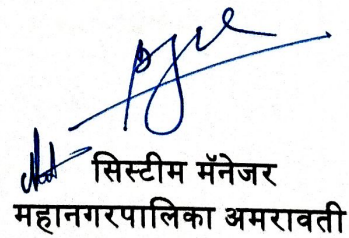 सिस्टीम मॅनेजर
महानगरपालिका अमरावती